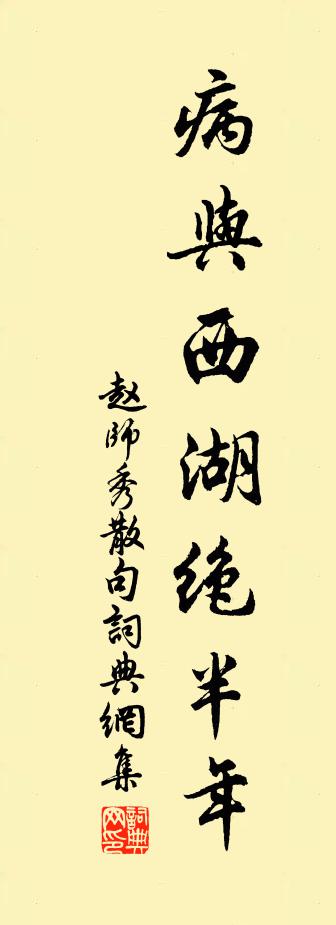 病與西湖絕半年
赵師秀散句詞典網集
詞典网印